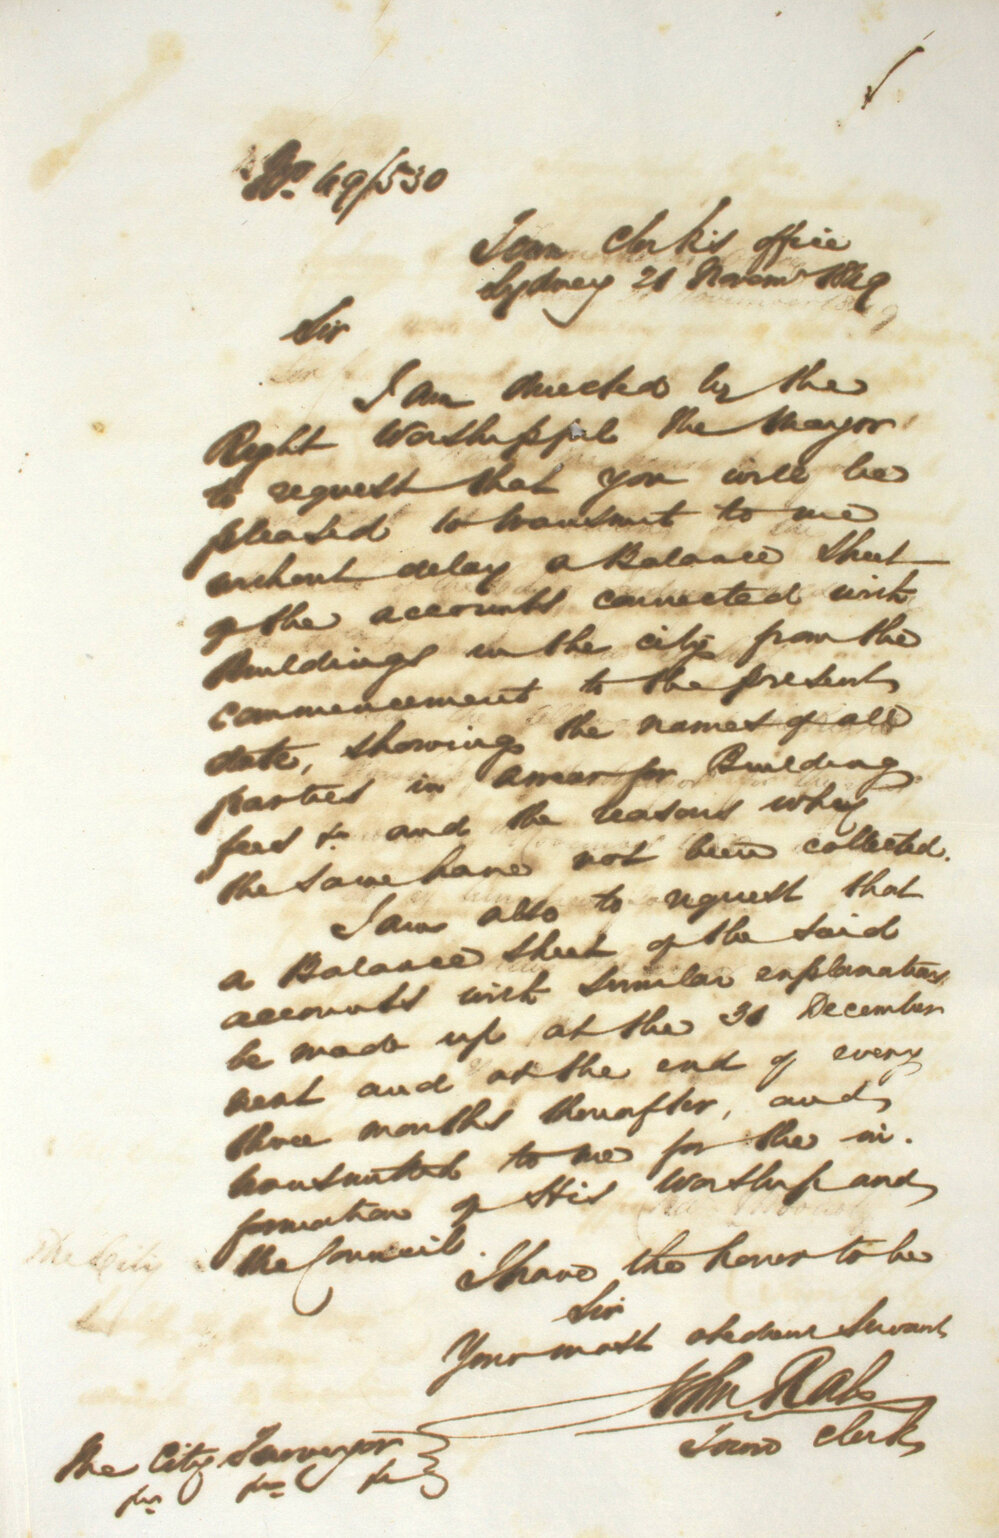 No. 49/530
Town Clerk's Office
Sydney 21 Novemr 1849
Sir
I am directed by the
Right Worshipful the Mayor
to request that you will be
pleased to transmit to me
without delay a Balance Sheet
of the accounts connected with
Buildings in the city from the
commencement to the present
date, showing the names of all
parties in arrear for Building
fees &c and the reasons why
the same have not been collected.
I am also to request that
a Balance Sheet of the said
accounts with similar explanations
be made up at the 31 December
next and at the end of every
three months thereafter, and
transmitted to me for the in-
formation of His Worship and
the Council.
I have the honor to be
Sir
Your most obedient Servant
John Rae
Town Clerk
The City Surveyor
&c &c &c